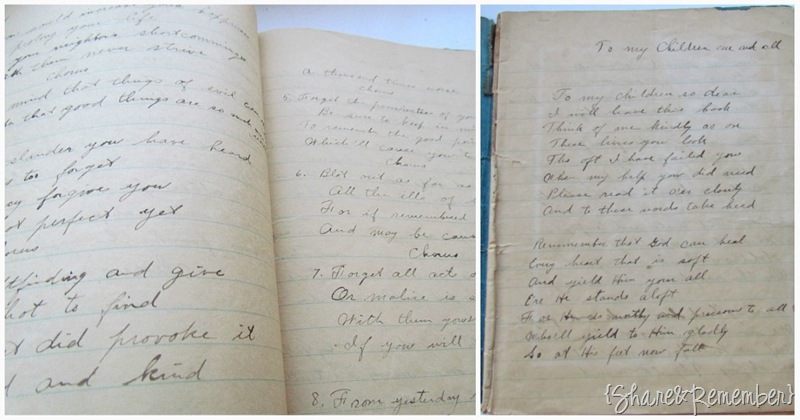 would increase your happiness
your life
your neighbors shortcomings
them never strive
Chorus
mind that things of evil
that good things are so
slander you have heard
to forget
forgive you
not perfect yet
Chorus
faultfinding and give
not to find
did provoke it
and kind
a thousand times more
Chorus
5. Forget the peculiarities of your
Be sure to keep in
To remember the good
Which'll cause you to
Chorus
6. Blot out as far as
All the ills of
For if remembered
And may be
Chorus
7. Forget all acts
Or malice is
With them
If you will
8. From yesterday
To my Children one and all
To my children so dear
I will leave this book
Think of me kindly as on
These lines you look
Tho oft I have failed you
When my help you did need
Please read it o'er closely
And to these words take heed
Remember that God can heal
Every heart that is soft
And yield Him your all
Ere He stands aloft
For He is worthy and precious to all
Who'll yield to Him gladly
So at His feet now fall
{Share&Remember}